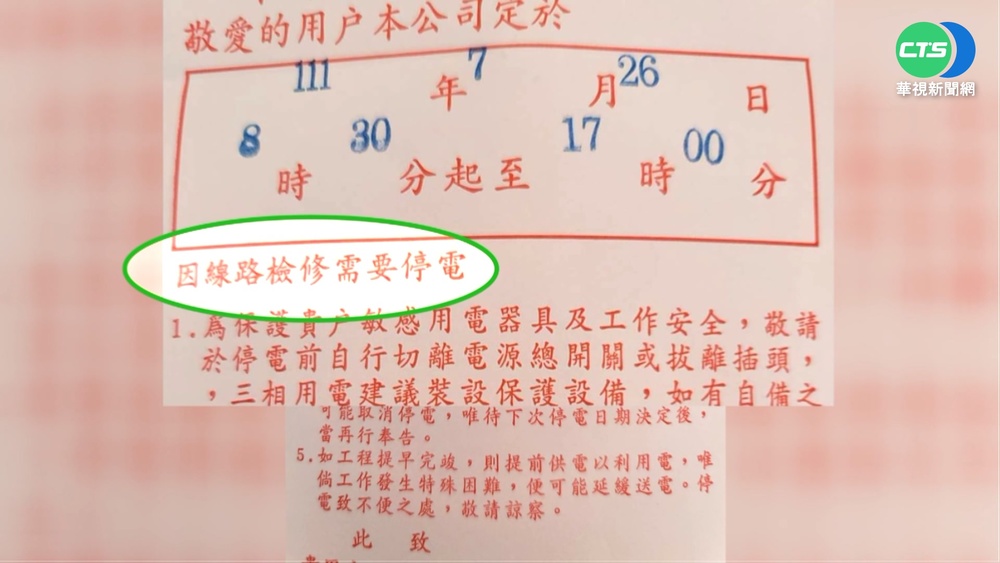 敬愛的用户本公司定於
111年7月26日
8時30分起至17時00分
因線路檢修需要停電
1.為保護貴户敏感用電器具及工作安全，敬請
於停電前自行切離電源總開關或拔離插頭，
，三相用電建議裝設保護設備，如有自備之
可能取消停電，唯待下次停電日期決定後，
當再行奉告。
5.如工程提早完竣，則提前供電以利用電，唯
倘工作發生特殊困難，便可能延緩送電。停
電致不便之處，敬請諒察。
此致
CTS
華視新聞網